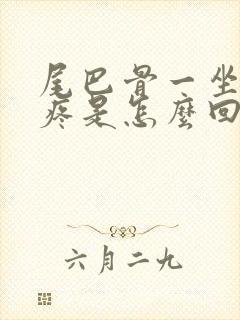 尾巴骨一坐
疼是怎麼回
六月二九